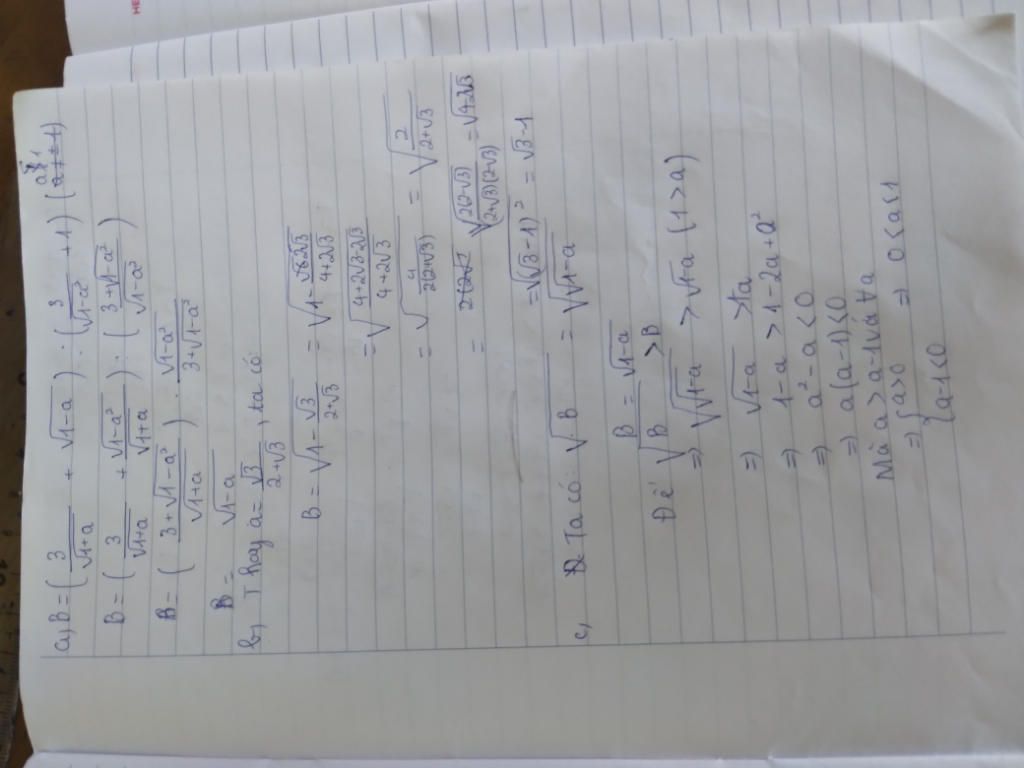 a, B = ( 3/√1+a + √1-a ) . ( 3/√1-a² + 1 )
B = ( 3/√1+a + √1-a²/√1+a ) . ( 3+√1-a²/√1-a² )
B = ( 3+√1-a²/√1+a ) . √1-a²/3+√1-a²
B = √1-a
b, Thay a = √3/2+√3, ta có
B = √1 - √3/2+√3 = √1 - √3.2√3/4+2√3
= √4+2√3-2√3/4+2√3
= √4/2(2+√3) = √2/2+√3
= √2(2-√3)/(2+√3)(2-√3) = √4-2√3
= √(√3-1)² = √3-1
c, Ta có √B = √√1-a
B = √1-a
Để √B > B
=> √√1-a > √1-a (1>a)
=> √1-a > 1-a
=> 1-a > 1-2a+a²
=> a²-a < 0
=> a(a-1)<0
Mà a > a-1 với ∀a
=> { a>0 => 0<a<1
{ a-1<0